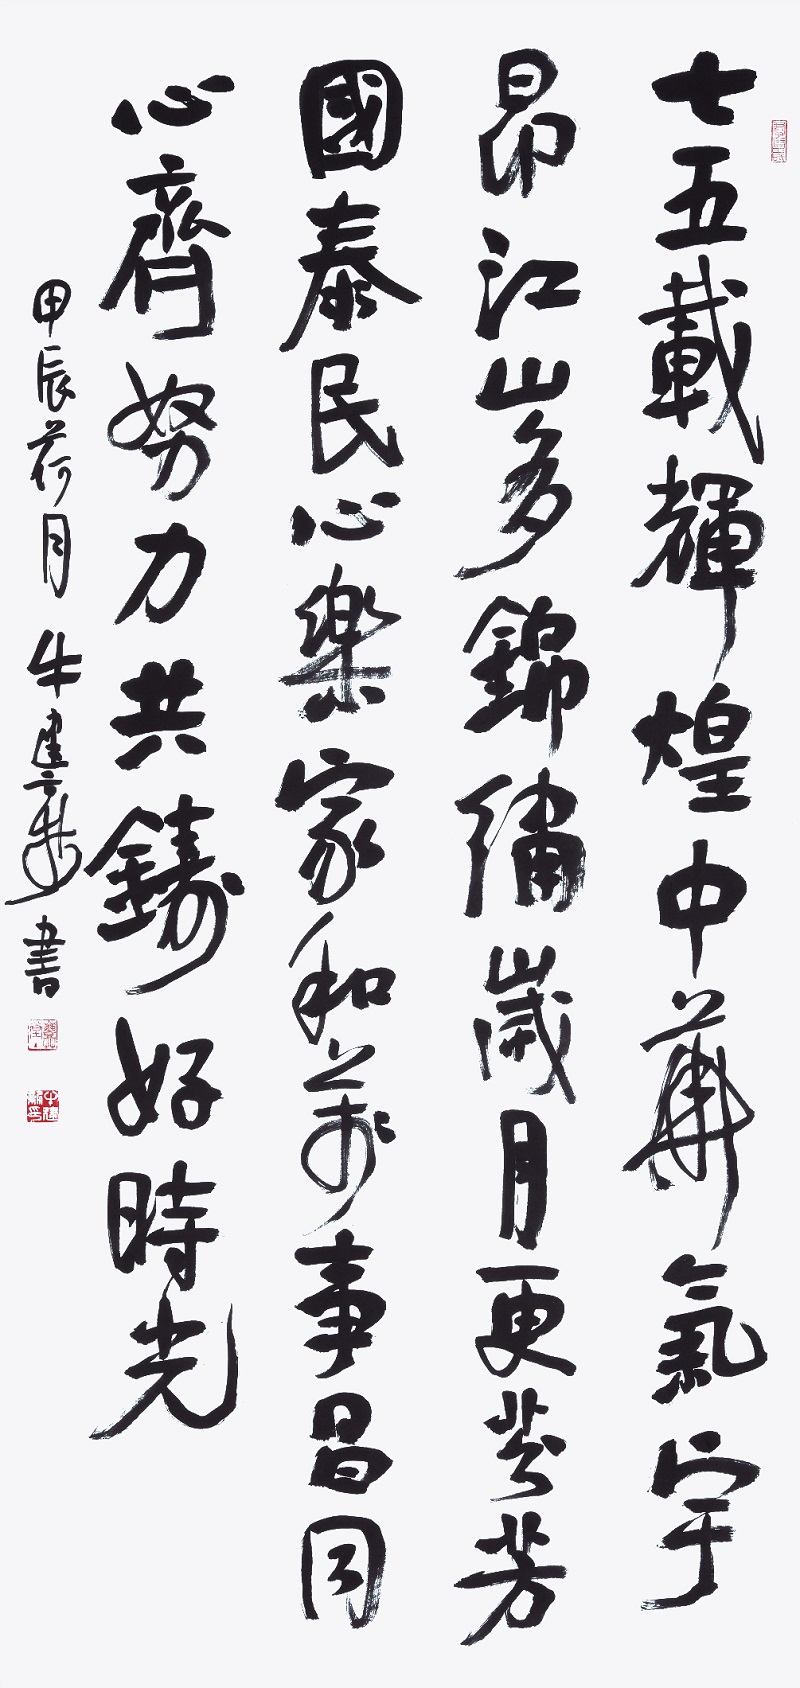 七五載輝煌中華氣宇
昂江山多錦繡歲月更芬芳
國泰民心樂家和萬事昌同
心齊努力共鑄好時光
甲辰荷月牛建書